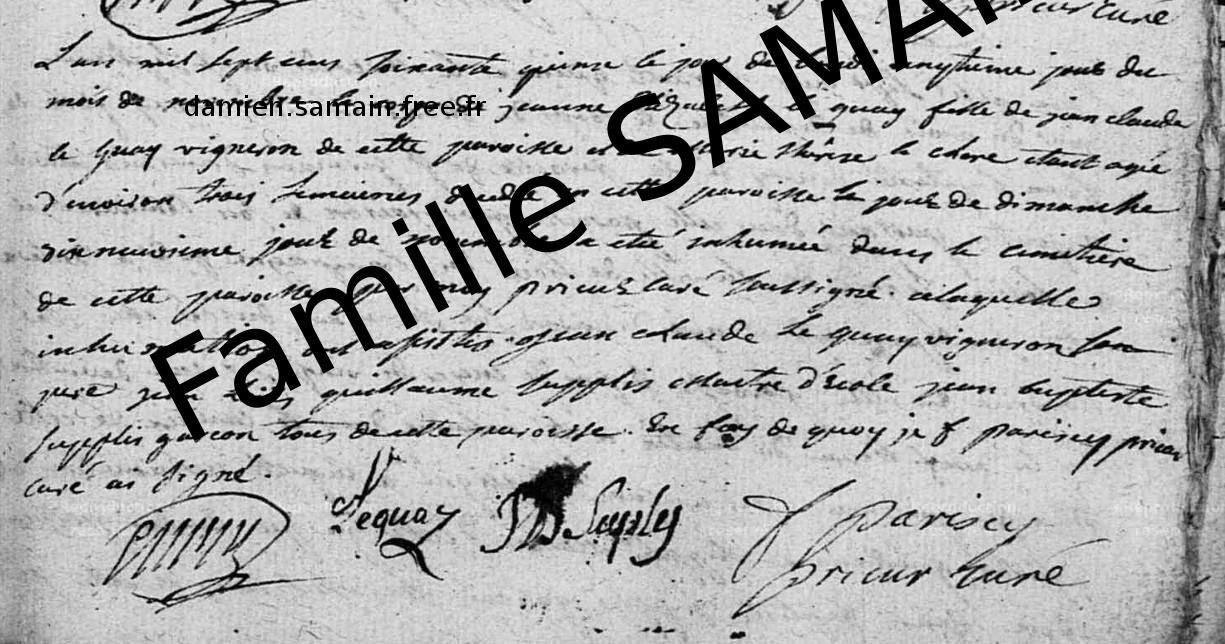 prieur Curé
Lan mil sept cens soixante quinze le jour de vingtieme jour du
mois de novembre jeanne le quay fille de jean claude
le quay vigneron de cette paroisse et de Marie therese le clere etant agée
d'environ trois semaines decedé en cette paroisse le jour de dimanche
dix neuvieme jour de novembre a eté inhumée dans le cimetiere
de cette paroisse par moy prieur Curé soussigné. alaquelle
inhumation ont assistes jean claude le quay vigneron son
pere guillaume supplis Maitre d'Ecole jean baptiste
supplis garcon tous de cette paroisse. En foy de quoy je f parisey prieur
Curé ai signé.
Lequay JB Suply f parisey
prieur Curé
damien.samain.free.fr
Famille SAMAI